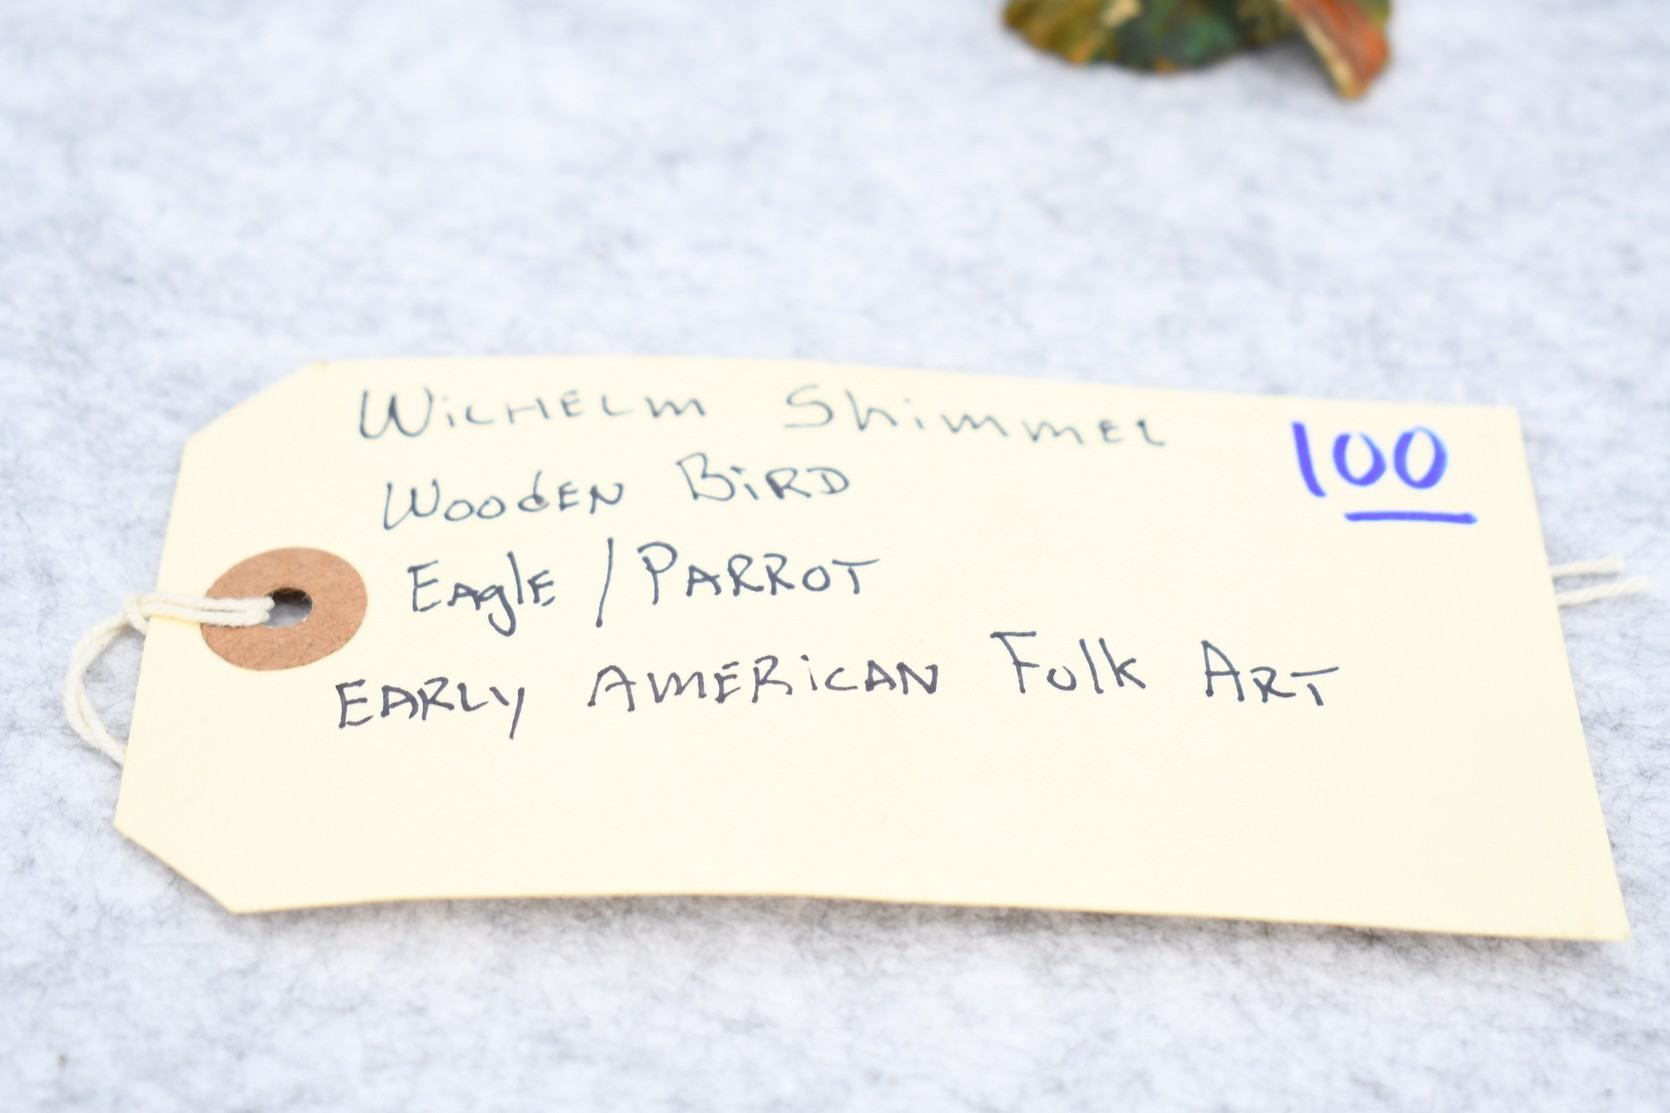 Wilhelm Shimmel
100
Wooden Bird
Eagle / Parrot
Early American Folk Art